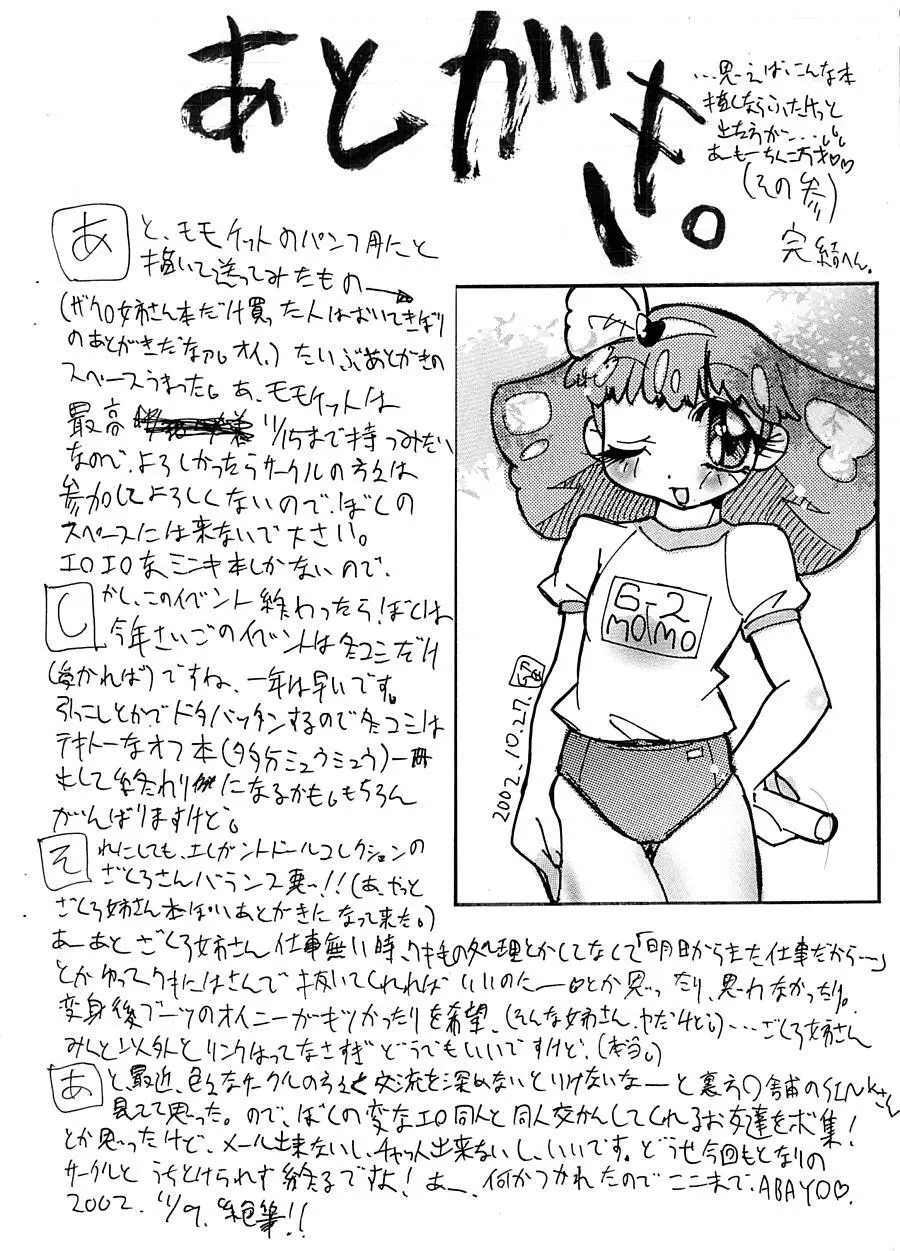 あとがき。
…思えばこんな本
描くならふたけっと
出ようか…
あーもーちんこ万才♡♡
(その参)
完結へん。
あと、モモケットのパンフ用にと
描いて送ってみたもの→
(ザクロ姉さん本だけ買った人はおいてきぼり
のあとがきだなァ。オイ。)だいぶあとがきの
スペースうまった。あ、モモケットは
最高 11/15まで持つみたい
なので、よろしかったらサークルの方々は
参加してよろしくないので、ぼくの
スペースには来ないで下さい。
エロエロなミンキ本しかないので、
しかし、このイベント終わったら、ぼくは
今年さいごのイベントは冬コミだけ
(受かれば)ですね、一年は早いです。
引っこしとかでドタバッタンするので冬コミは
テキトーなオフ本(多分ミュウミュウ)一冊
出して終わりになるかも。もちろん
がんばりますけど。
それにしても、エレガントドールコレクションの
ざくろさんバランス悪っ!!(あ、やっと
ざくろ姉さん本ぽいあとがきになって来た。)
あーあとざくろ姉さん仕事無い時、ワキ毛の処理とかしてなくて「明日からまた仕事だから…」
とかゆってワキにはさんで抜いてくれればいいのにーとか思ったり、思わなかったり。
変身後ブーツのオイニーがキツかったりを希望、(そんな姉さん、ヤだけど)…ざくろ姉さん
みんと以外とリンクはってなさすぎどうでもいいですけど、(本当。)
あと、最近、色々なサークルの方々と交流を深めないといけないなーと裏方〇舗のSINKさん
見てて思った。ので、ぼくの変なエロ同人と同人交かんしてくれるお友達をボ集!
とか思ったけど、メール出来ないし、チャット出来ないし、いいです。どうせ今回もとなりの
サークルと うちとけられず終るですよ! あー、何かつかれたのでここまで、ABAYO♡.
2002. 11/9. 絶筆!!
6-2
MOMO
2002.10.27.